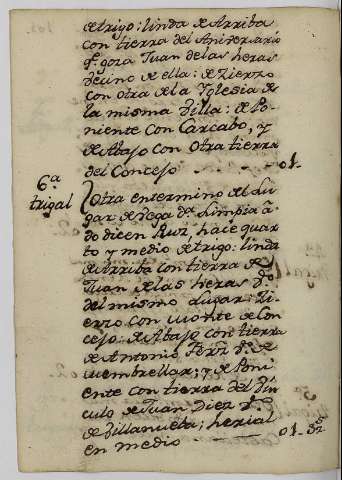 de trigo: linda de Arriba
con tierra del Aniversario
q.e goza Juan de las heras
vecino de ella: de Zierzo
con otra de la Yglesia de
la misma Villa: de Po-
niente con Carcabo, y
de Abajo con otra tierra
del Concejo 01.
6.a
trigal
Otra en termino del Lu-
gar de Vega
do dicen Ruz, hace quar-
to y medio de trigo: linda
de Arriba con tierra de
Juan de las heras v.o
del mismo Lugar: Zi-
erzo con monte de Con-
cejo: de Abajo con tierra
de Antonio Perez v.o de
cuembrellar; y de Poni-
ente con tierra del Vin-
culo de Juan Diez v.o
de Villanueba; herial
en medio 01-